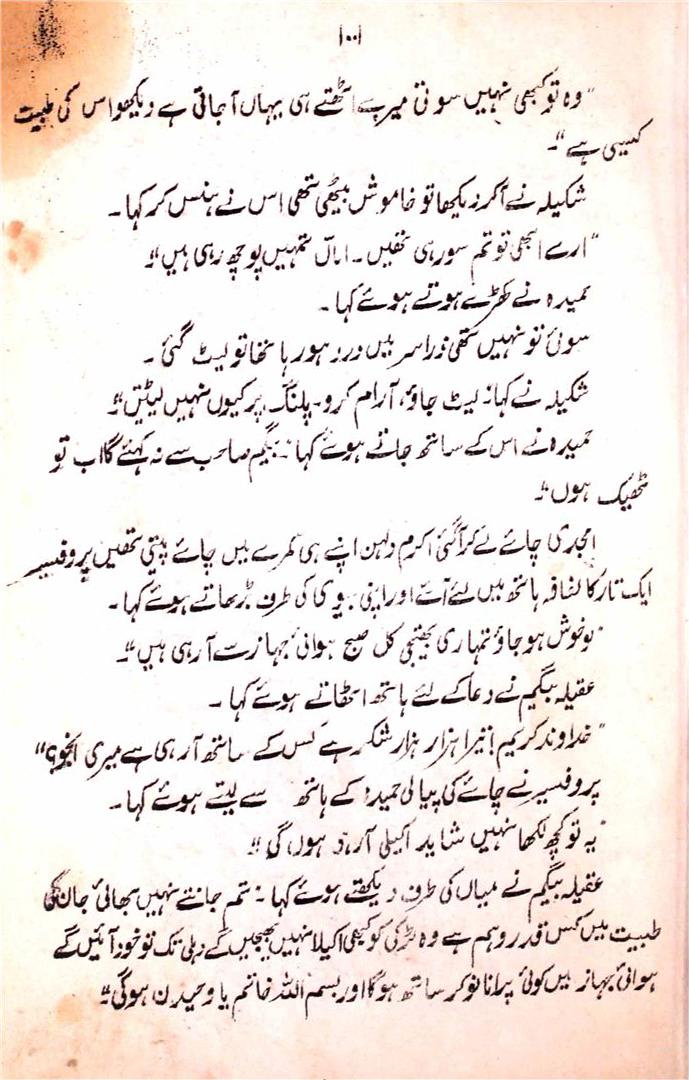 ۱۰۰
"وہ تو کبھی نہیں سوتی میرے اٹھتے ہی یہاں آجاتی ہے دیکھو اس کی طبیت
کیسی ہے"۔
شکیلہ نے آکر دیکھا تو خاموش بیٹھی تھی اس نے ہنس کر کہا۔
"ارے ابھی تو تم سو رہی تھیں۔ اماں تمہیں پوچھ رہی ہیں"
حمیدہ نے کھڑے ہوتے ہوئے کہا۔
سوئی تو نہیں تھی ذرا سر میں درد ہو رہا تھا تو لیٹ گئی۔
شکیلہ نے کہا "لیٹ جاؤ، آرام کرو۔ پلنگ پر کیوں نہیں لیٹتیں"
حمیدہ نے اس کے ساتھ جاتے ہوئے کہا "بیگم صاحب سے نہ کہئے گا اب تو
ٹھیک ہوں"۔
امجدی چائے لے کر آگئی اکرم دلہن اپنے ہی کمرے میں چائے پیتی تھیں پروفیسر
ایک تار کا لفافہ ہاتھ میں لئے آئے اور اپنی بیوی کی طرف بڑھاتے ہوئے کہا۔
"لو خوش ہو جاؤ تمہاری بھتیجی کل صبح ہوائی جہاز سے آرہی ہیں"۔
عقیلہ بیگم نے دعا کے لئے ہاتھ اٹھاتے ہوئے کہا۔
"خداوند کریم! تیرا ہزار ہزار شکر ہے کس کے ساتھ آرہی ہے میری انجو؟"
پروفیسر نے چائے کی پیالی حمیدہ کے ہاتھ سے لیتے ہوئے کہا۔
"یہ تو کچھ لکھا نہیں شاید اکیلی آرہی ہوں گی"
عقیلہ بیگم نے میاں کی طرف دیکھتے ہوئے کہا "تم جانتے نہیں بھائی جان کی
طبیت میں کس قدر وہم ہے وہ لڑکی کو کبھی اکیلا نہیں بھیجیں گے دہلی تک تو خود آئیں گے
ہوائی جہاز میں کوئی پرانا نوکر ساتھ ہوگا اور بسم اللہ خانم یا وحیدن ہوگی"۔